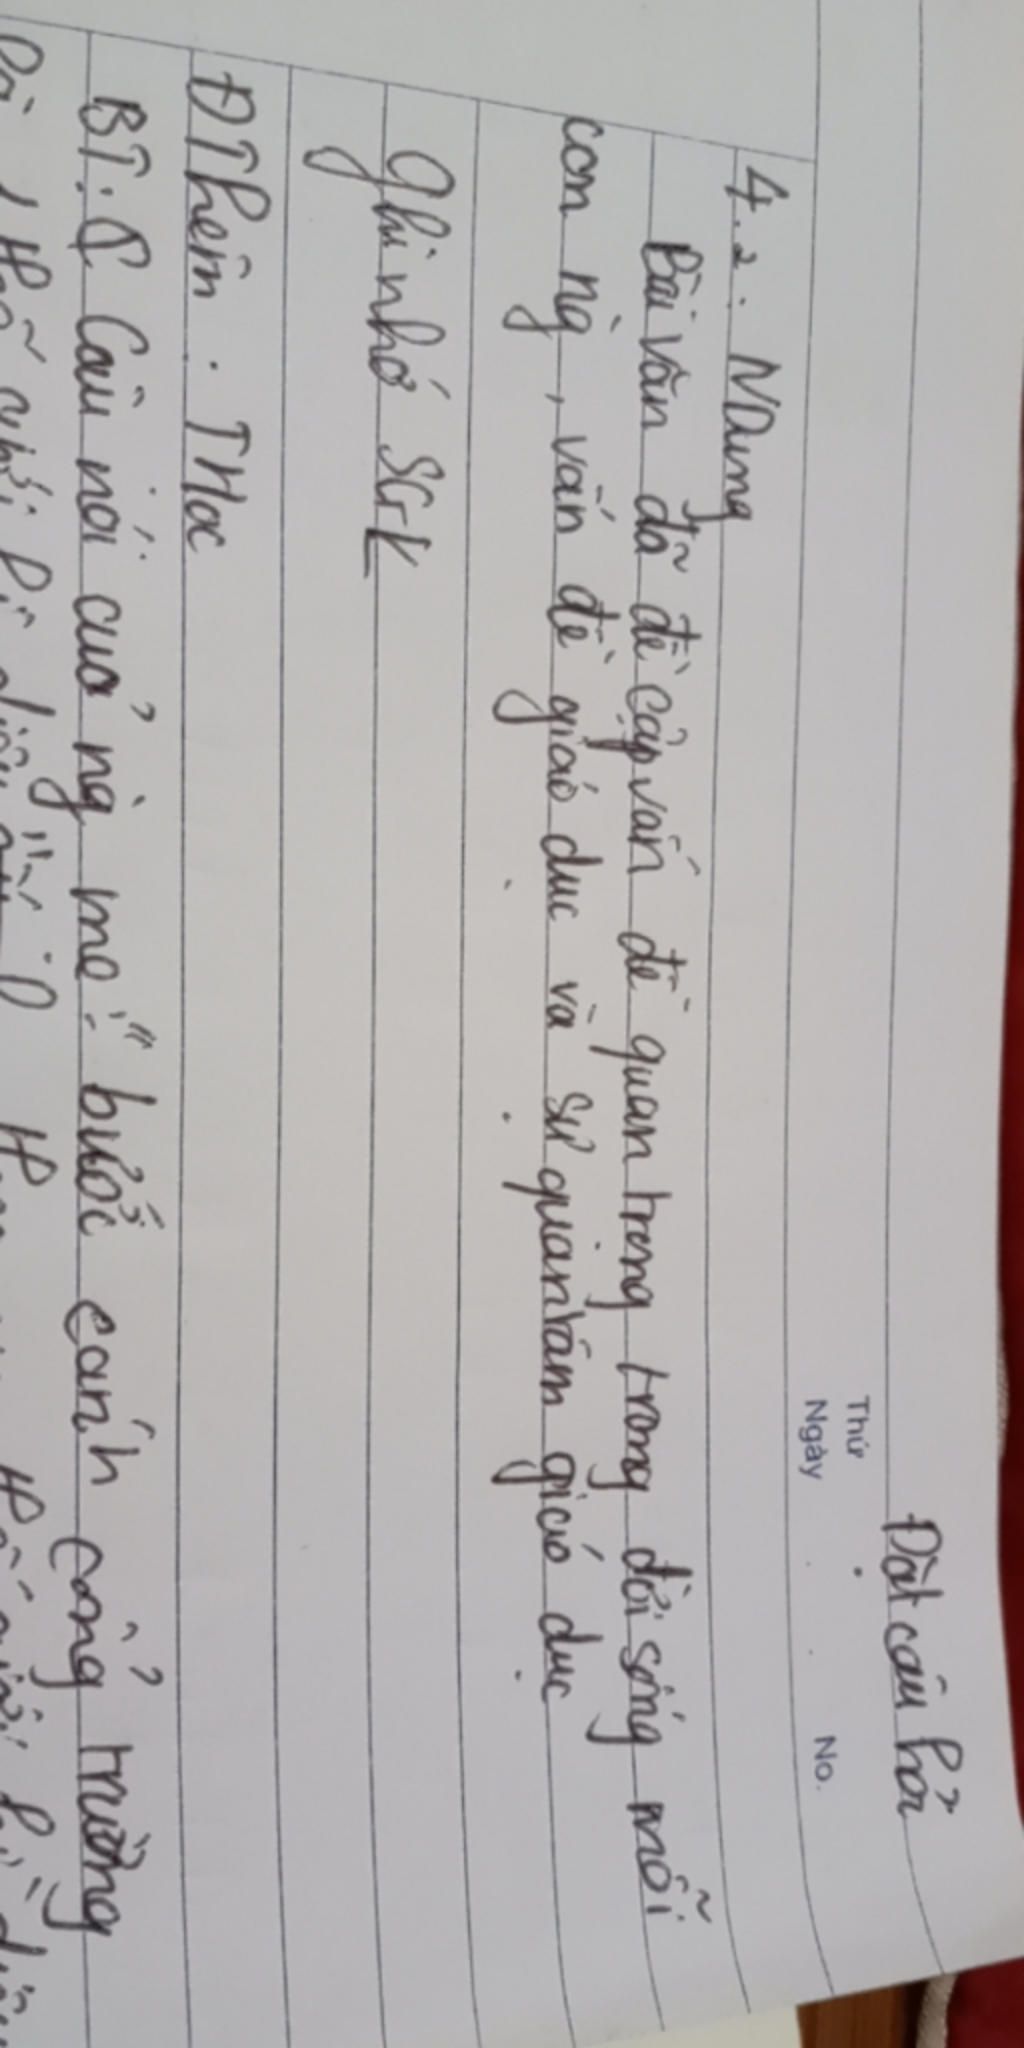 Đặt câu hỏi
Thứ
Ngày No.
4.2. NDung
Bài văn đã đề cập vấn đề quan trọng trong đời sống mỗi
con ng̀, vấn đề giáo dục và sự quan tâm giáo dục
Ghi nhớ SGK
ĐThêm: THoc
BT: Câu nói của ng̀ mẹ: "bước qua cánh cổng trường